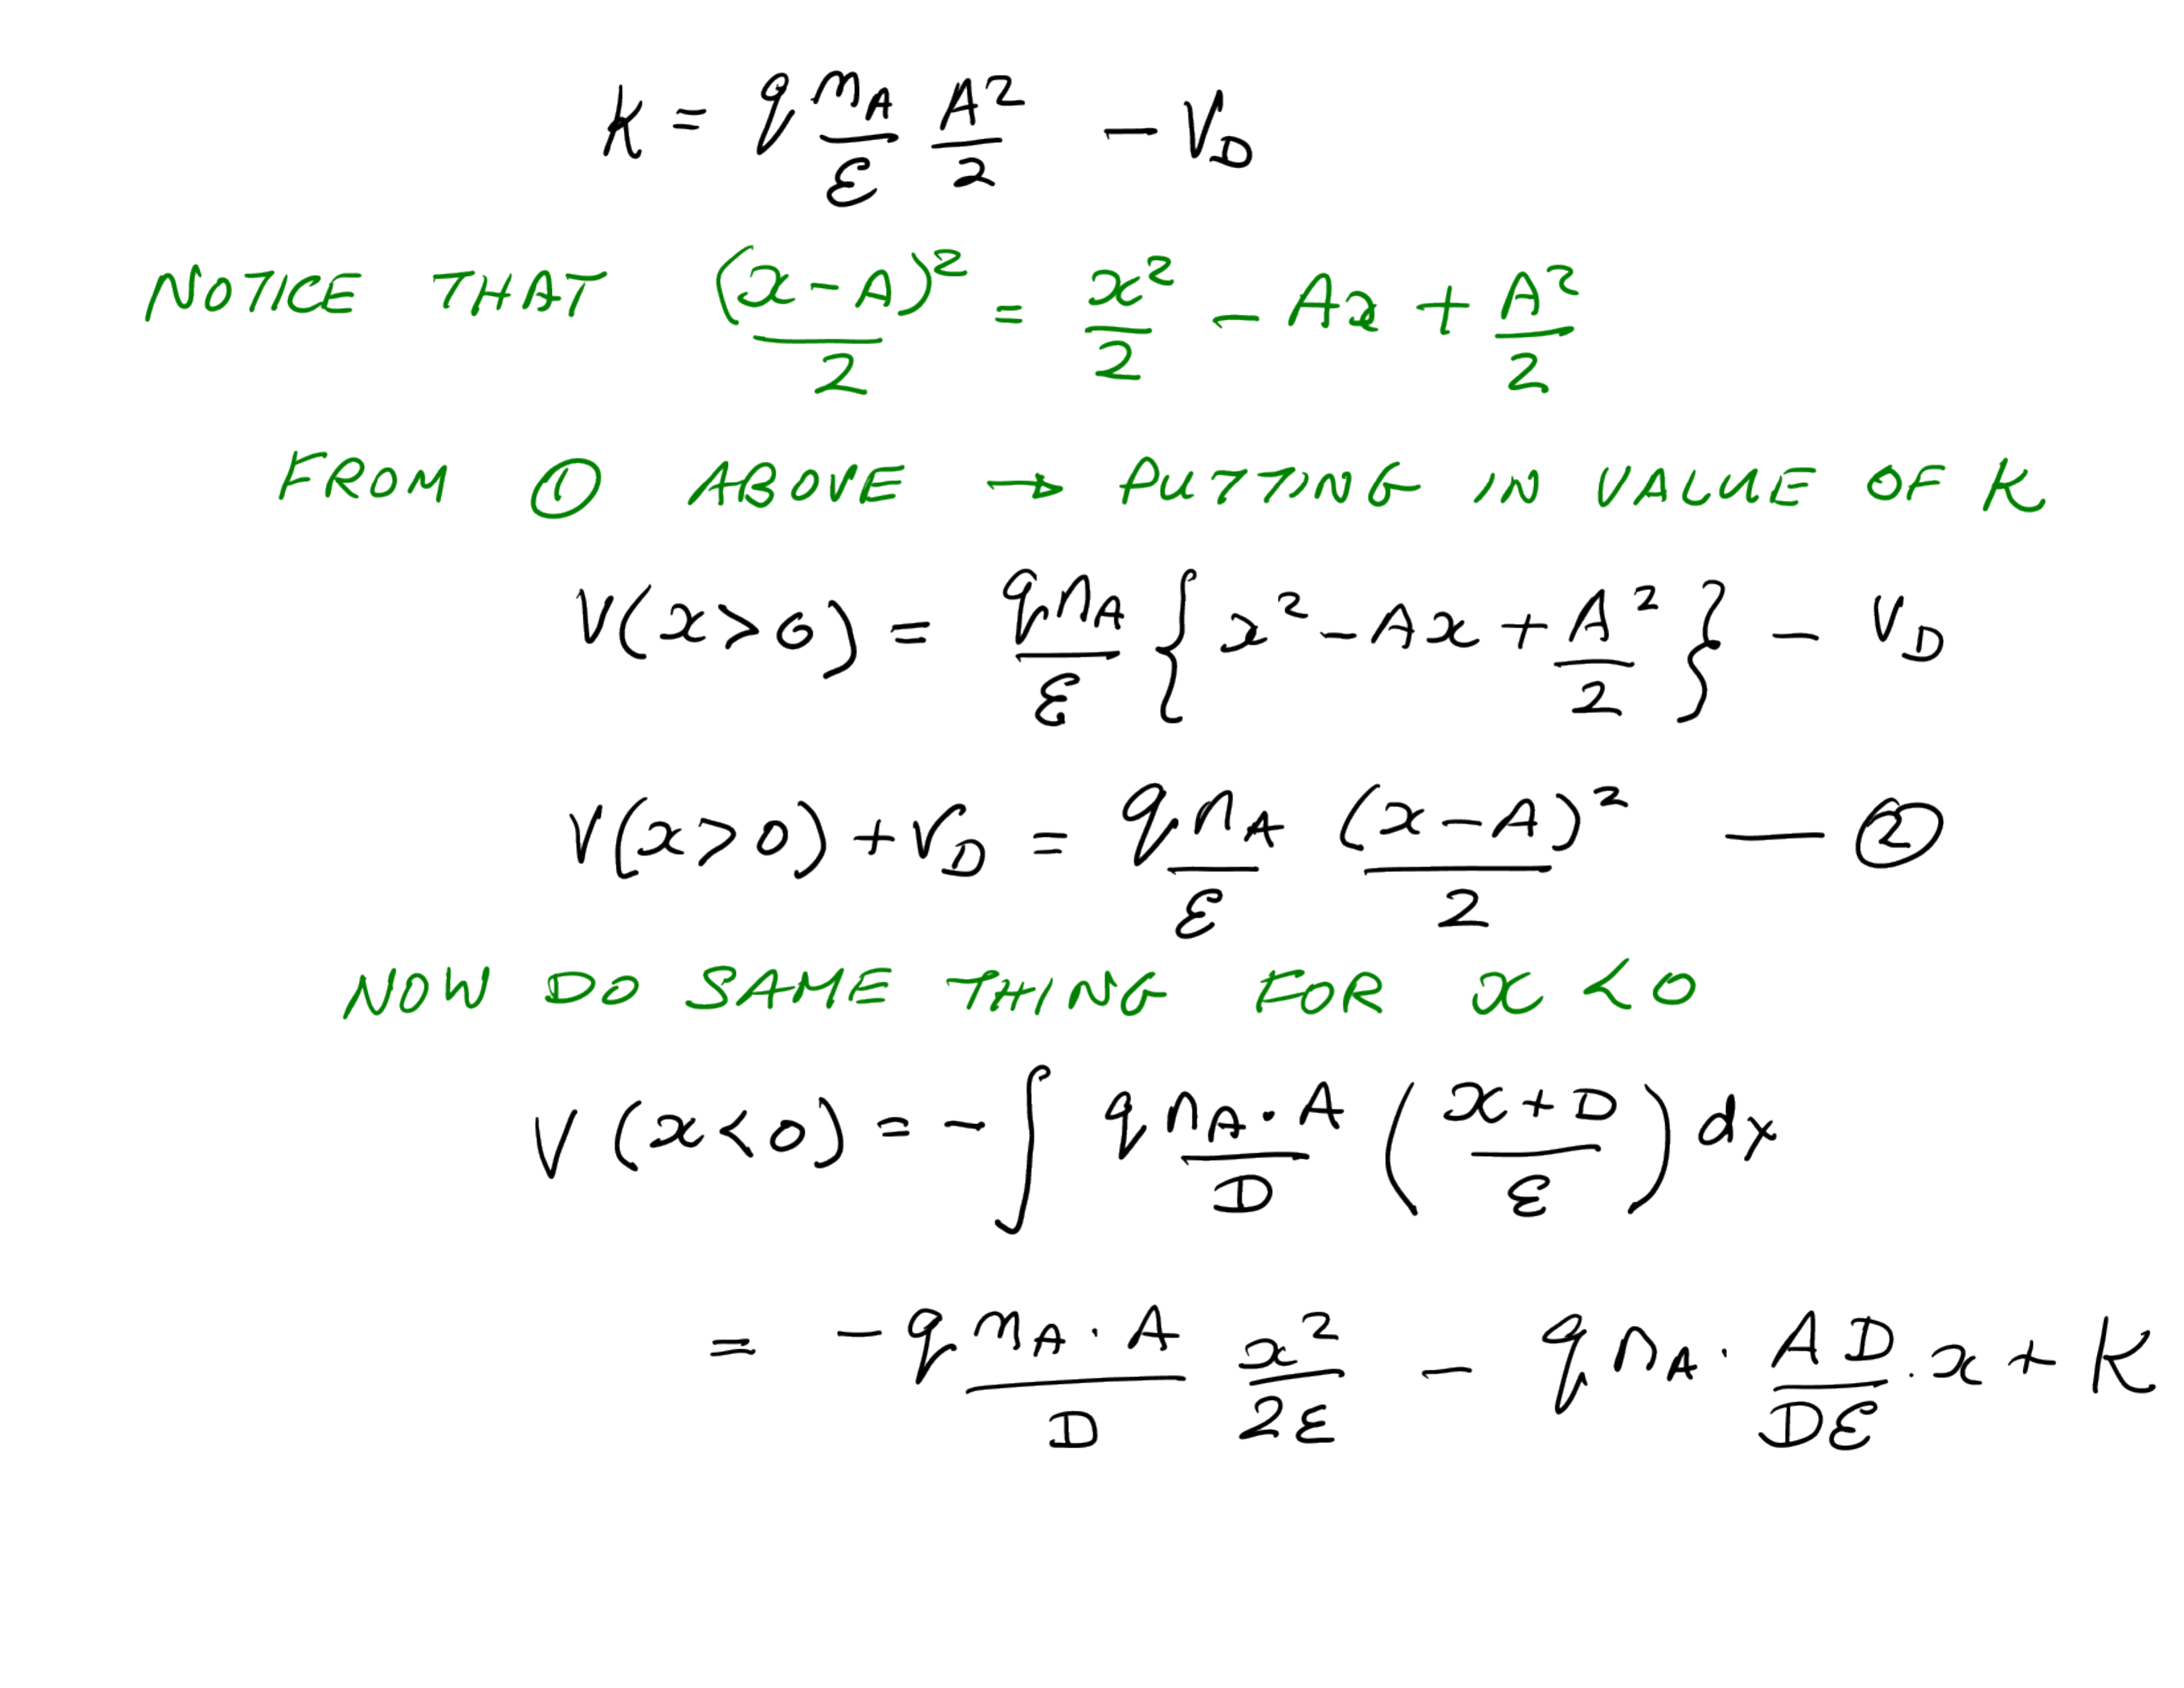 K = q n_A/ε A²/2 − V_D
NOTICE THAT (x−A)²/2 = x²/2 − Ax + A²/2
FROM ① ABOVE → PUTTING IN VALUE OF K
V(x>0) = q n_A/ε { x² − Ax + A²/2 } − V_D
V(x>0) + V_D = q n_A/ε (x−A)²/2 — ②
NOW DO SAME THING FOR x < 0
V (x<0) = − ∫ q n_A · A/D ( (x+D)/ε ) dx
= − q n_A · A/D x²/2ε − q n_A · AD/Dε · x + K